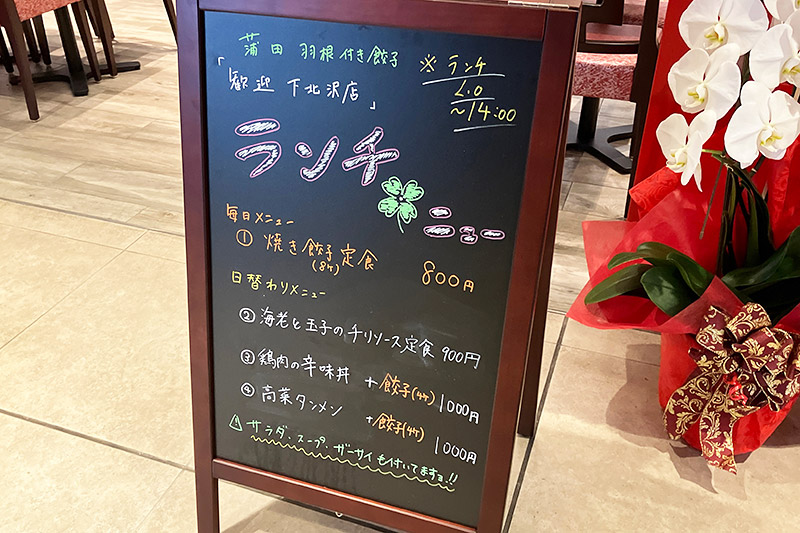 蒲田 羽根付き餃子
「歓迎 下北沢店」
※ランチ
L.O
～14:00
ランチ
メニュー
毎日メニュー
① 焼き餃子定食 800円
(8ヶ)
日替わりメニュー
② 海老と玉子のチリソース定食 900円
③ 鶏肉の辛味丼 + 餃子(4ヶ) 1000円
④ 高菜タンメン + 餃子(4ヶ) 1000円
サラダ、スープ、ザーサイも付いてますョ!!